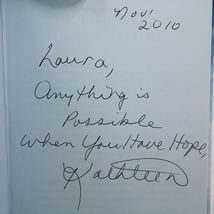 Nov.
2010
Laura,
Anything is
Possible
When You Have Hope,
Kathleen